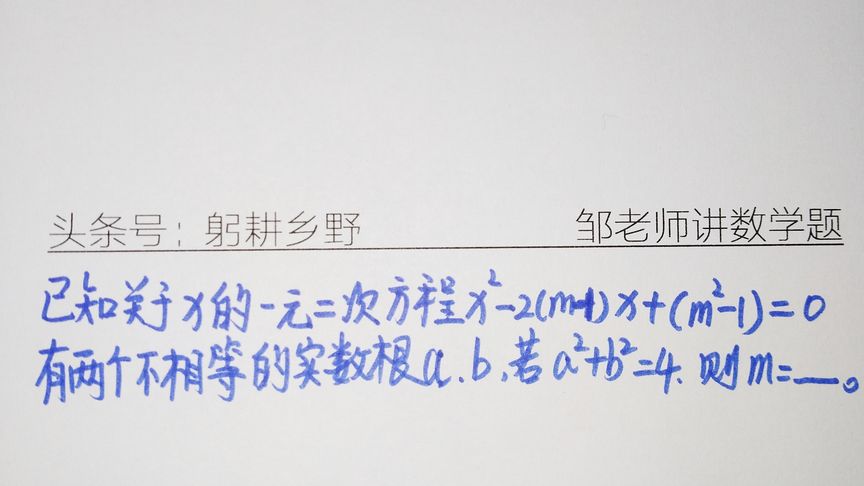 头条号：躬耕乡野 邹老师讲数学题
已知关于x的一元二次方程x²-2(m-1)x+(m²-1)=0
有两个不相等的实数根a.b,若a²+b²=4.则m=__。